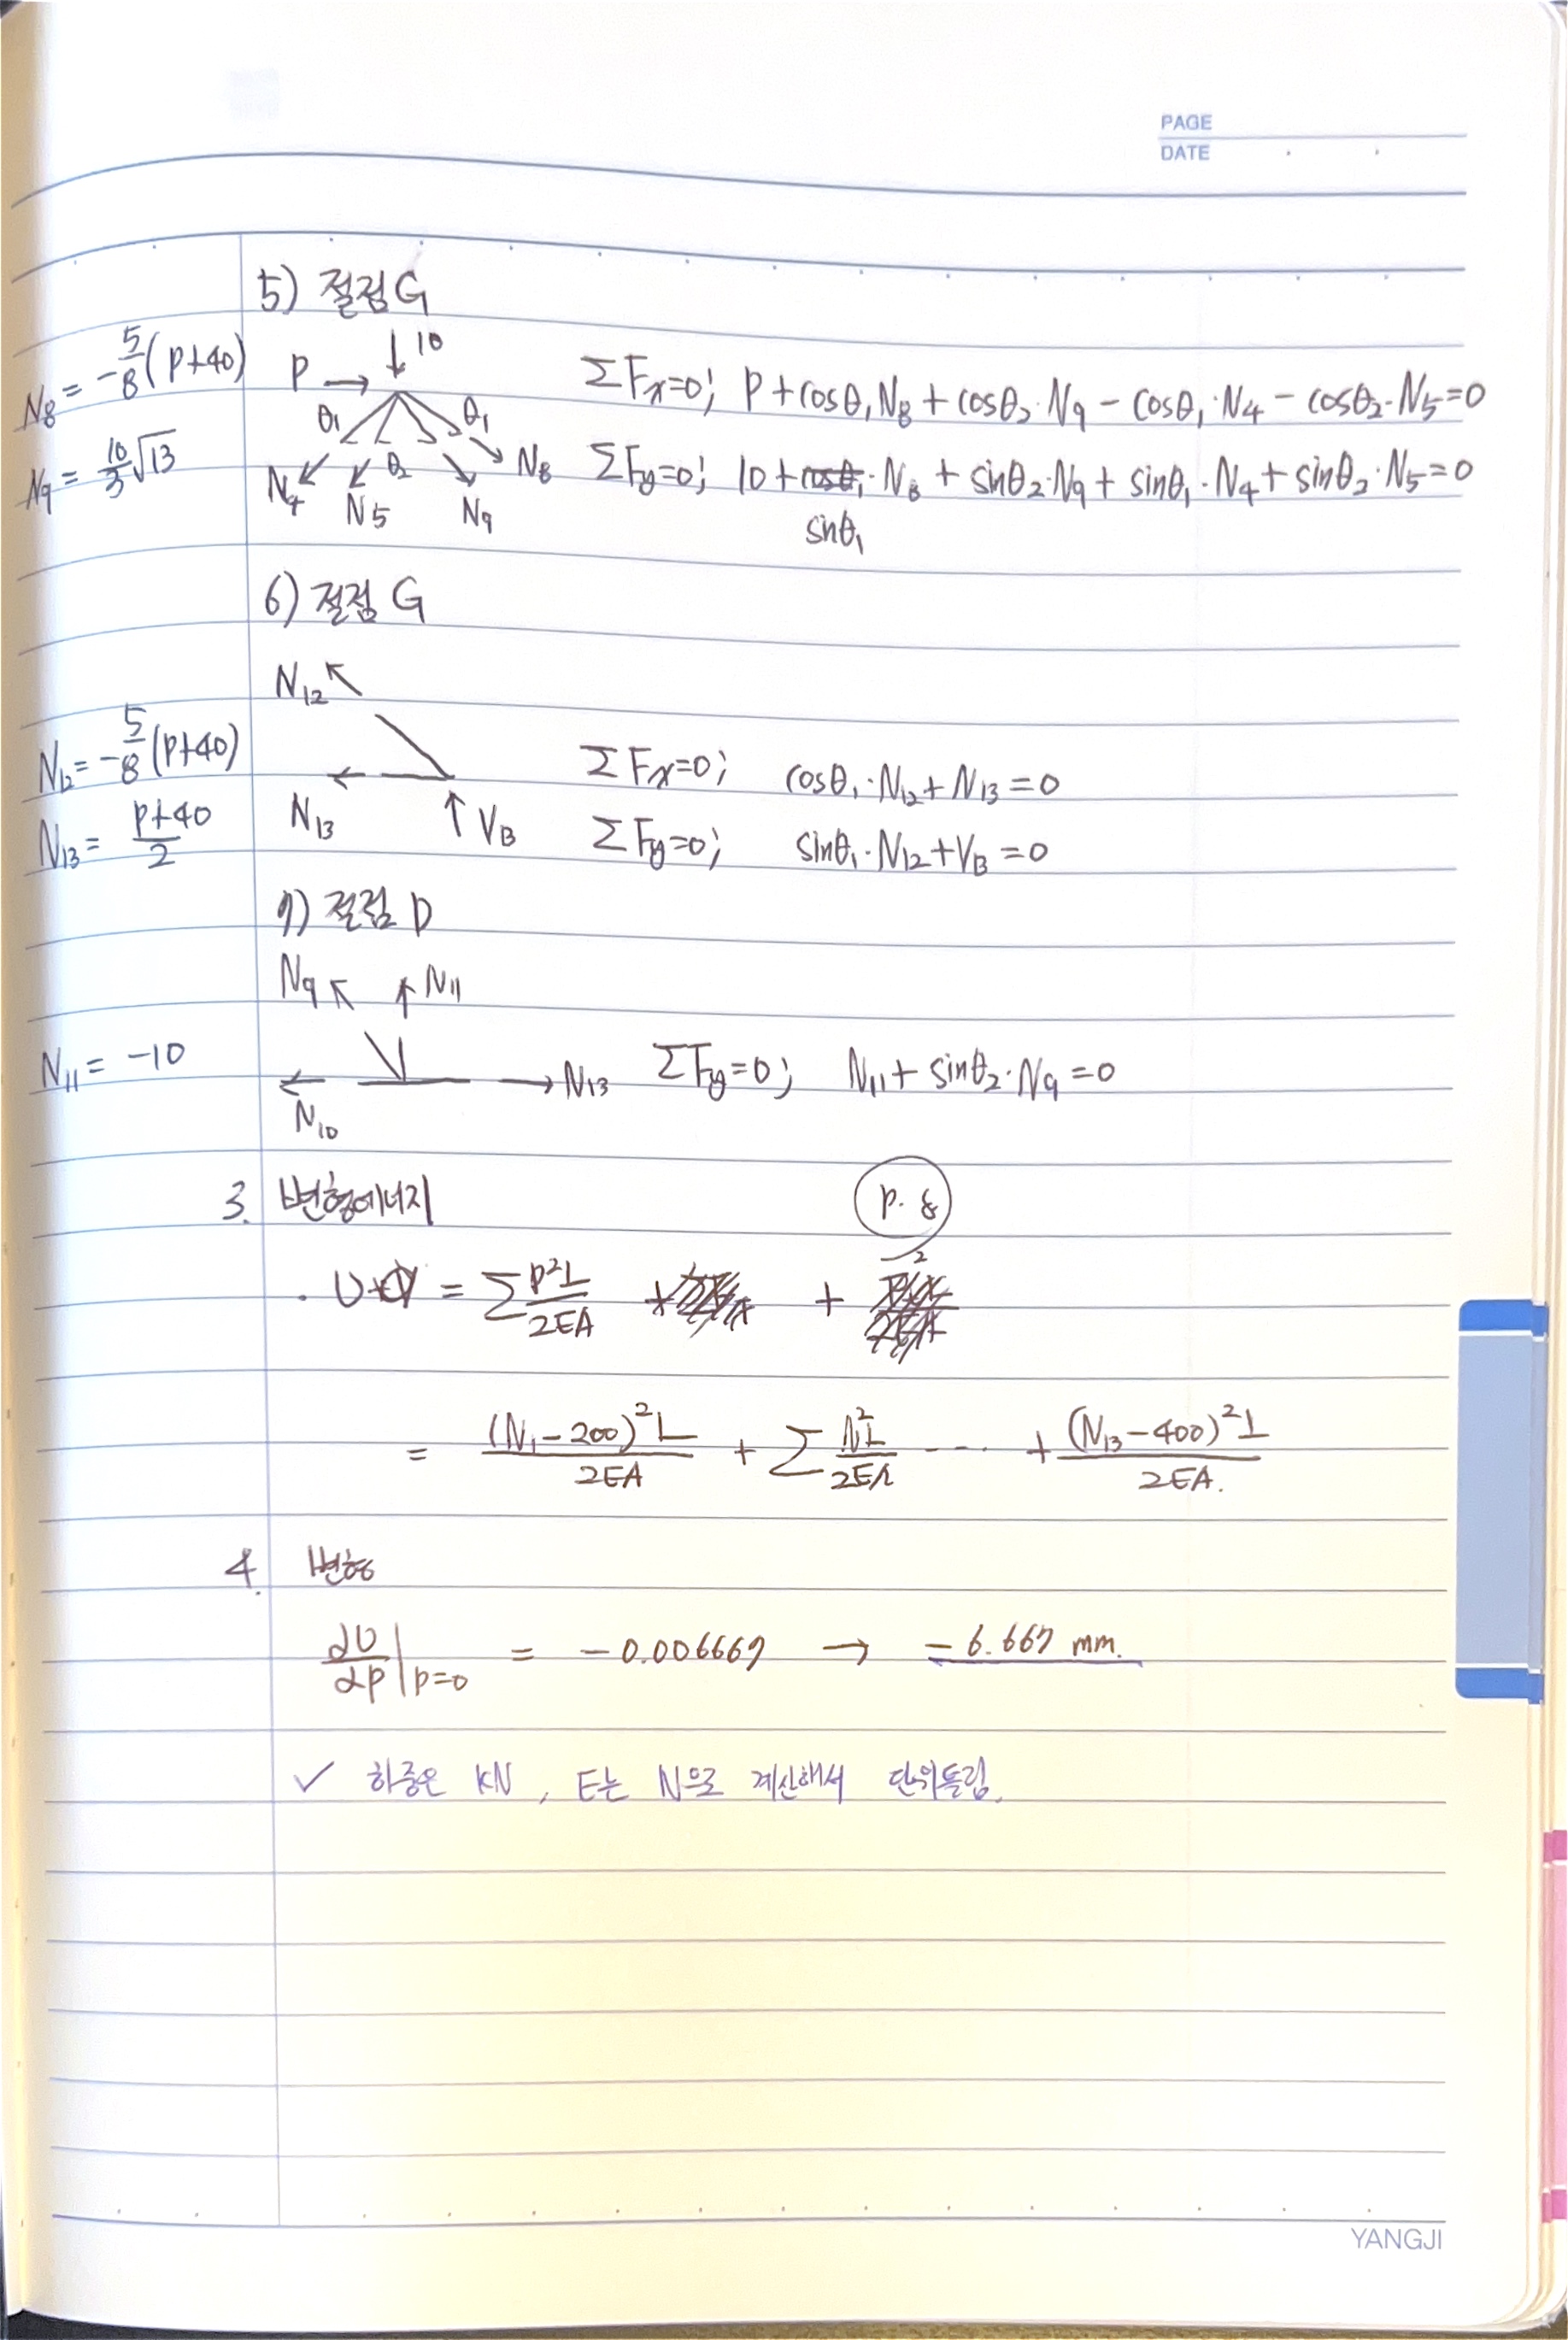 PAGE
DATE
5) 절점G
N8 = -5/8(P+40)
N9 = 10/3√13
P → ↓10
θ1 θ1
θ2
N4 N5 N9 N8
ΣFx=0; P+cosθ1N8+cosθ2·N9-cosθ1·N4-cosθ2·N5=0
ΣFy=0; 10+cosθ1·N8+sinθ2·N9+sinθ1·N4+sinθ2·N5=0
sinθ1
6) 절점 G
N12
N12=-5/8(P+40)
N13 ↑VB
ΣFx=0; cosθ1·N12+N13=0
N13= P+40/2
ΣFy=0; sinθ1·N12+VB=0
7) 절점 D
N9 ↑N11
N11= -10
N10 →N13
ΣFy=0; N11+sinθ2·N9=0
3. 변형에너지
P·δ
U = ΣP²L/2EA + +
= (N1-200)²L/2EA + ΣN²L/2EA ---- + (N13-400)²L/2EA.
4. 변형
∂U/∂P|P=0 = -0.006667 → -6.667 mm.
✓ 하중은 KN, E는 N으로 계산해서 단위틀림.
YANGJI